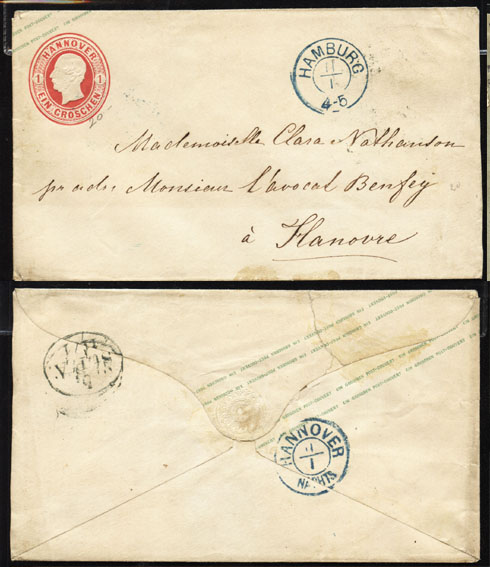 HANNOVER
1 1
EIN GROSCHEN
HAMBURG
11
1
4-5
20
Mademoiselle Clara Nathanson
pr adr: Monsieur l'avocat Benfey
à Hanovre
EIN GROSCHEN POST-COUVERT
HANNOVER
11
1
NACHTS